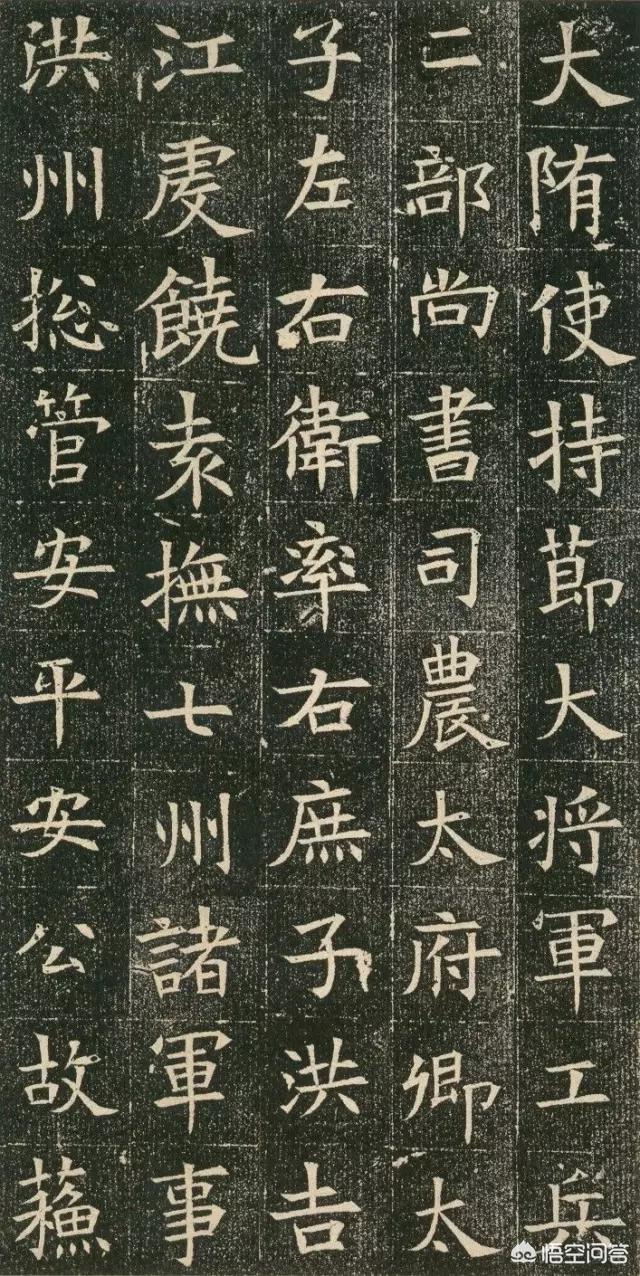 大隋使持節大将軍工兵
二部尚書司農太府卿太
子左右衛率右庶子洪吉
江虔饒袁撫七州諸軍事
洪州捴管安平安公故蘓
悟空问答